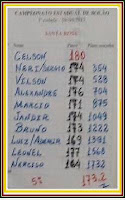 CAMPEONATO ESTADUAL DE BOLÃO
SANTA ROSA
GELSON 180
YERI/SERGIO 174 354
VILSON 174 528
ALEXANDRE 176 704
MARCIO 171 875
SANDER 174 1049
BRUNO 173 1222
LUIZ/ADEMIR 169 1391
LEONEL 177 1568
NERCISO 164 1732
5º 173.2